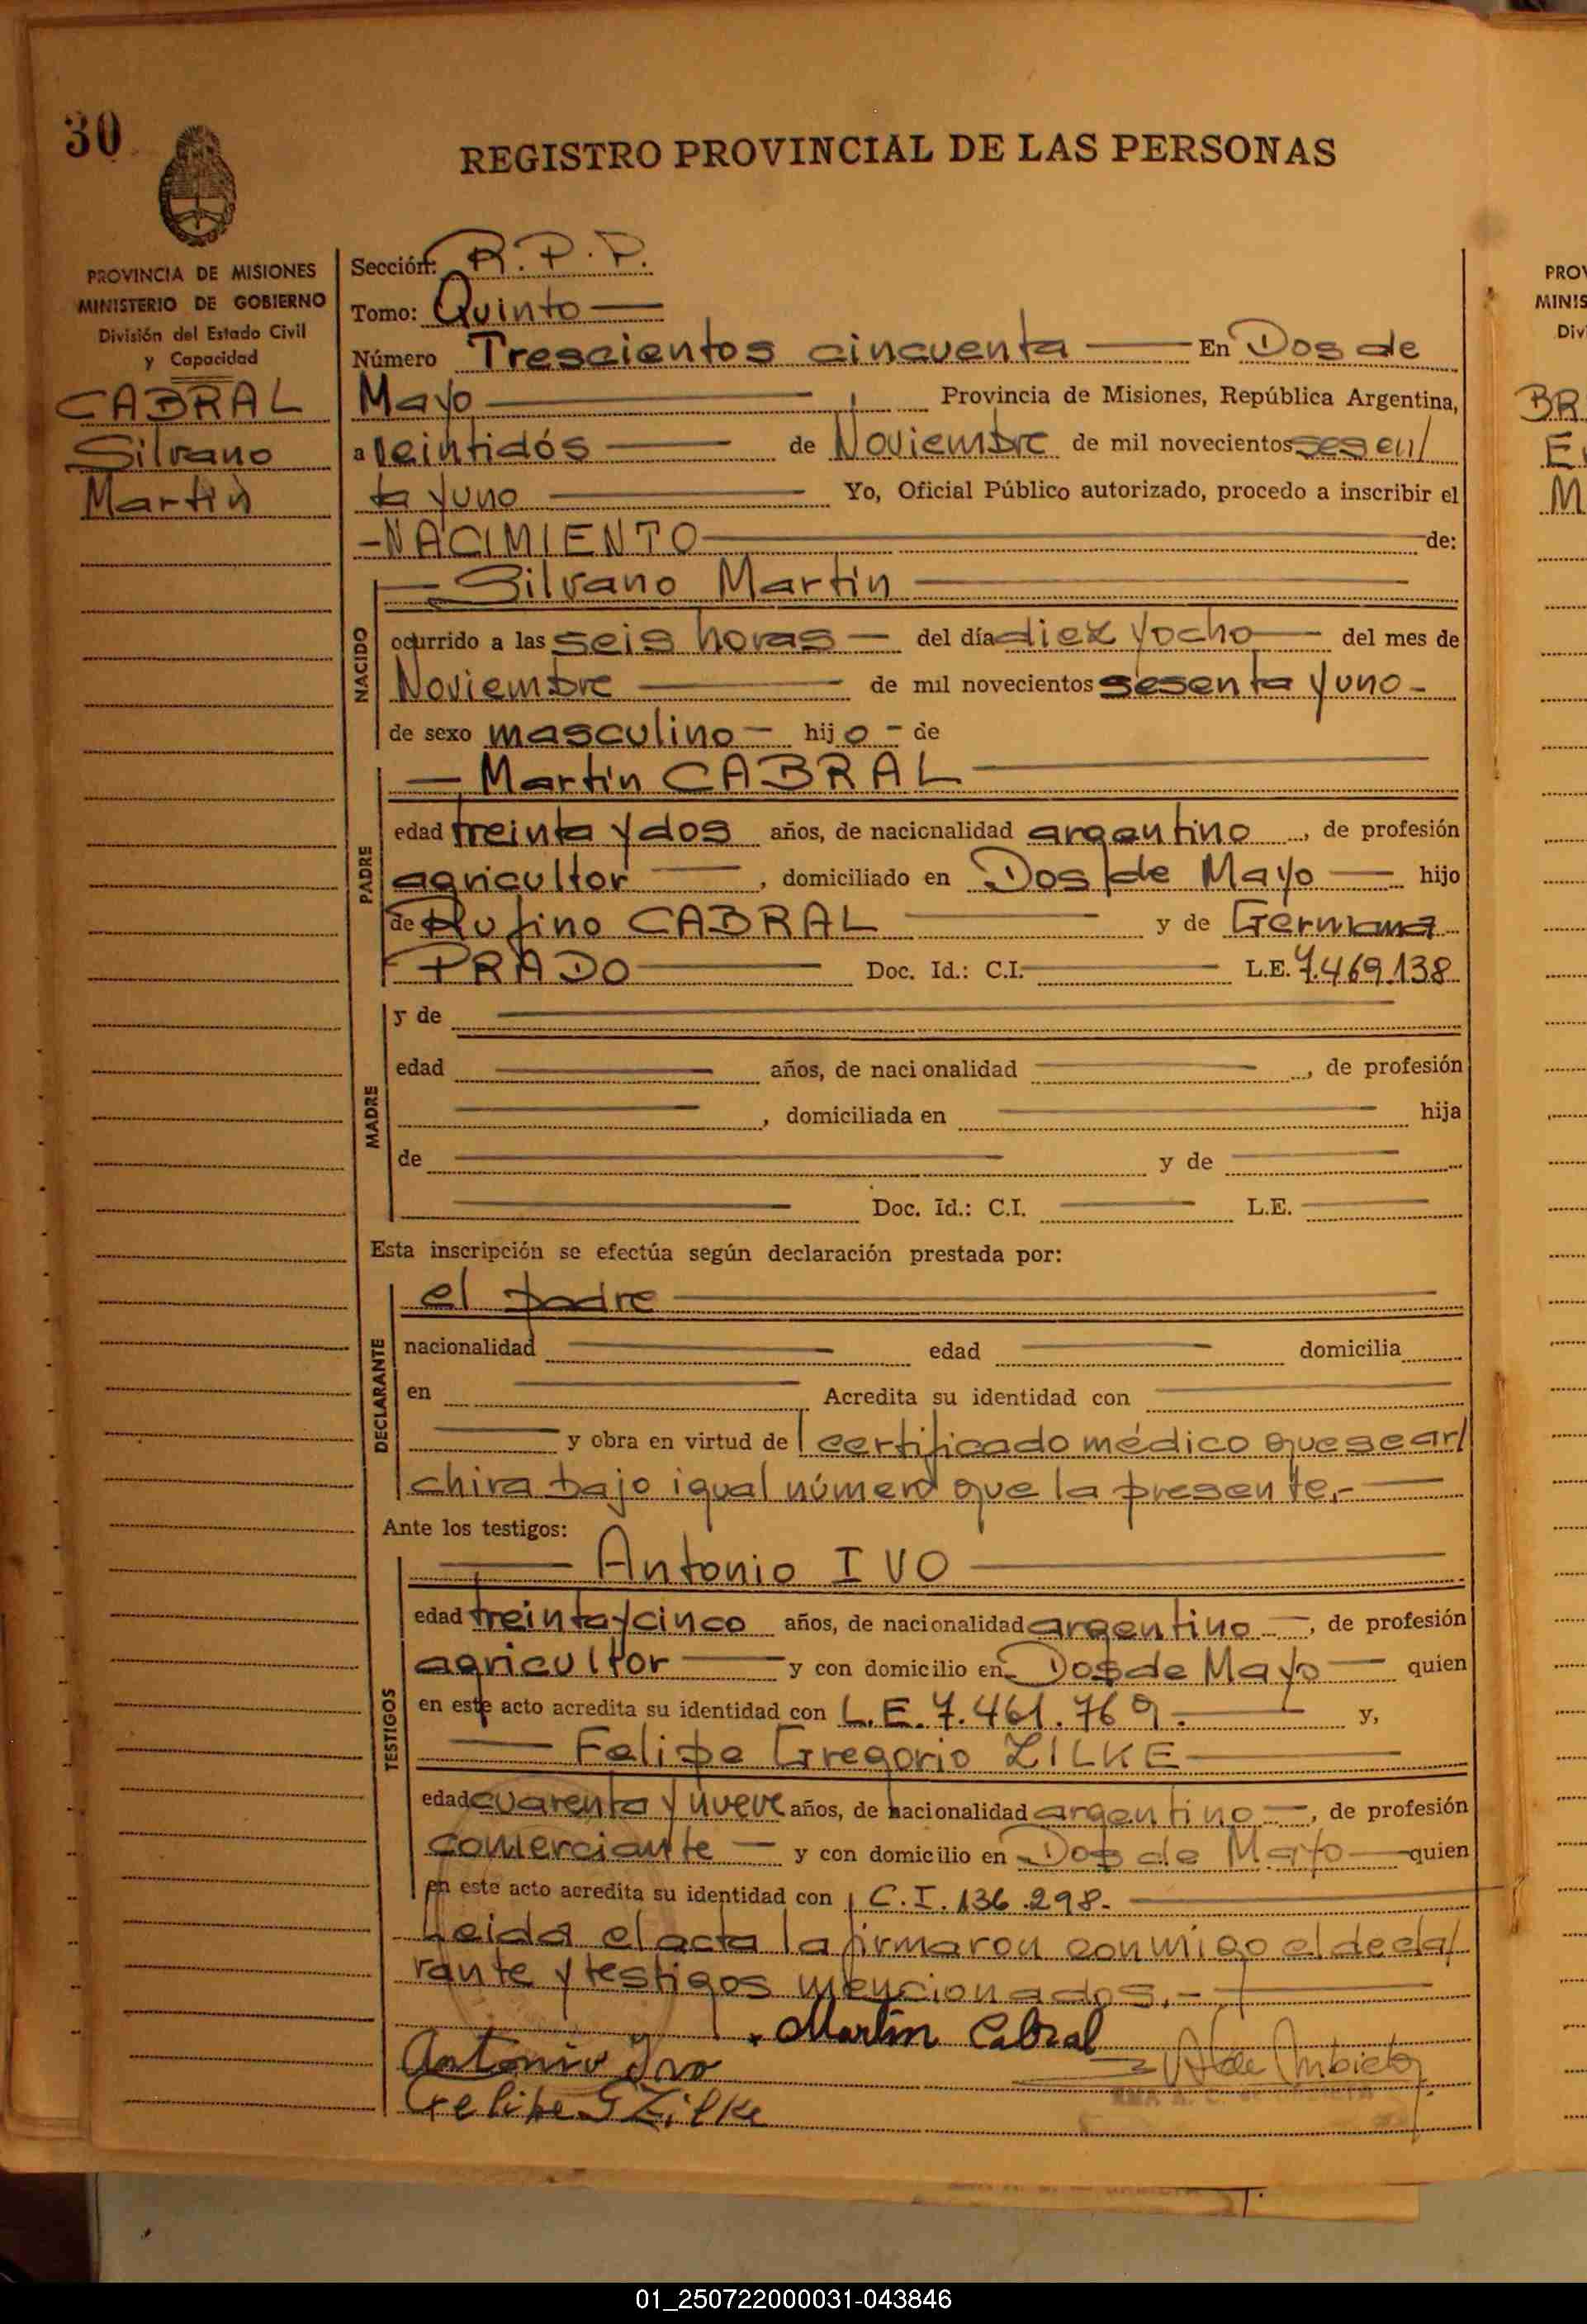 30
REGISTRO PROVINCIAL DE LAS PERSONAS
PROVINCIA DE MISIONES
MINISTERIO DE GOBIERNO
División del Estado Civil
y Capacidad
CABRAL
Silvano
Martin
Sección: R.P.P.
Tomo: Quinto
Número Trescientos cincuenta En Dos de
Mayo Provincia de Misiones, República Argentina,
a veintidós de Noviembre de mil novecientos sesen/
ta y uno Yo, Oficial Público autorizado, procedo a inscribir el
-NACIMIENTO de:
NACIDO
Silvano Martin
ocurrido a las seis horas - del día diez y ocho del mes de
Noviembre de mil novecientos sesenta y uno -
de sexo masculino - hijo - de
PADRE
Martin CABRAL
edad treinta y dos años, de nacionalidad argentino, de profesión
agricultor, domiciliado en Dos de Mayo hijo
de Rufino CABRAL y de Germana
PRADO Doc. Id.: C.I. L.E. 7.469.138
MADRE
y de
edad años, de nacionalidad , de profesión
, domiciliada en hija
de y de
Doc. Id.: C.I. L.E.
Esta inscripción se efectúa según declaración prestada por:
DECLARANTE
el padre
nacionalidad edad domicilia
en Acredita su identidad con
y obra en virtud de certificado médico que se ar/
chiva bajo igual número que la presente.-
Ante los testigos:
TESTIGOS
Antonio IVO
edad treinta y cinco años, de nacionalidad argentino -, de profesión
agricultor y con domicilio en Dos de Mayo quien
en este acto acredita su identidad con L.E. 7.461.769. y,
Felipe Gregorio ZILKE
edad cuarenta y nueve años, de nacionalidad argentino -, de profesión
comerciante - y con domicilio en Dos de Mayo quien
en este acto acredita su identidad con C.I. 136.298.
Leida el acta la firmaron conmigo el decla/
rante y testigos mencionados.-
Martin Cabral
Antonio Ivo
Felipe G Zilke
PROV
MINIS
Div
BR
E
M
01_250722000031-043846